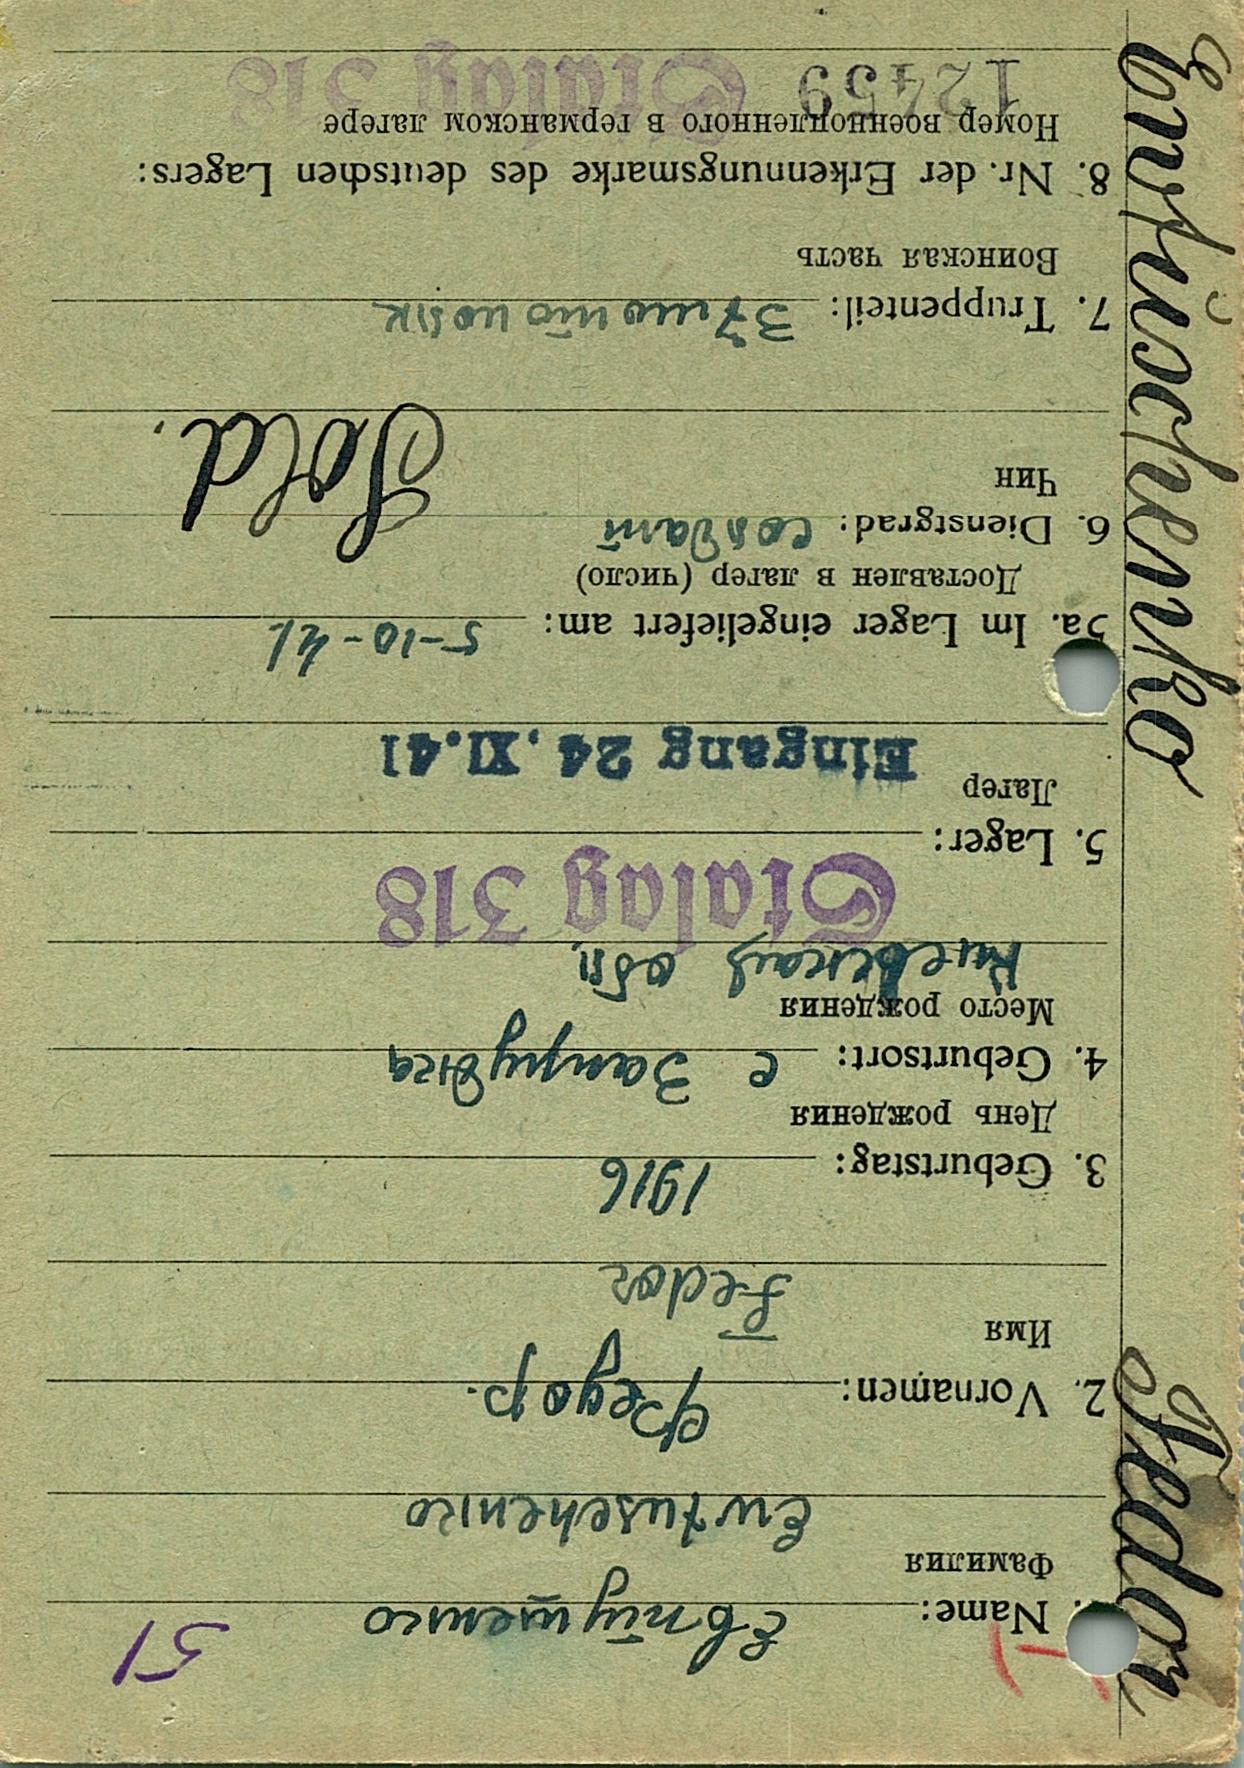 51
1. Name: Евтушенко
Фамилия
Ewtuschenko
2. Vornamen: Федор.
Имя
Fedor
3. Geburtstag: 1916
День рождения
4. Geburtsort: с
Место рождения
Киевская обл.
Stalag 318
5. Lager:
Лагер
Eingang 24. XI. 41
5a. Im Lager eingeliefert am: 5-10-41
Доставлен в лагер (число)
6. Dienstgrad: солдат
Чин
Sold.
7. Truppenteil: 37
Воинская часть
8. Nr. der Erkennungsmarke des deutschen Lagers:
Номер военнопленного в германском лагере
12459 Stalag 318
Ewtuschenko Fedor